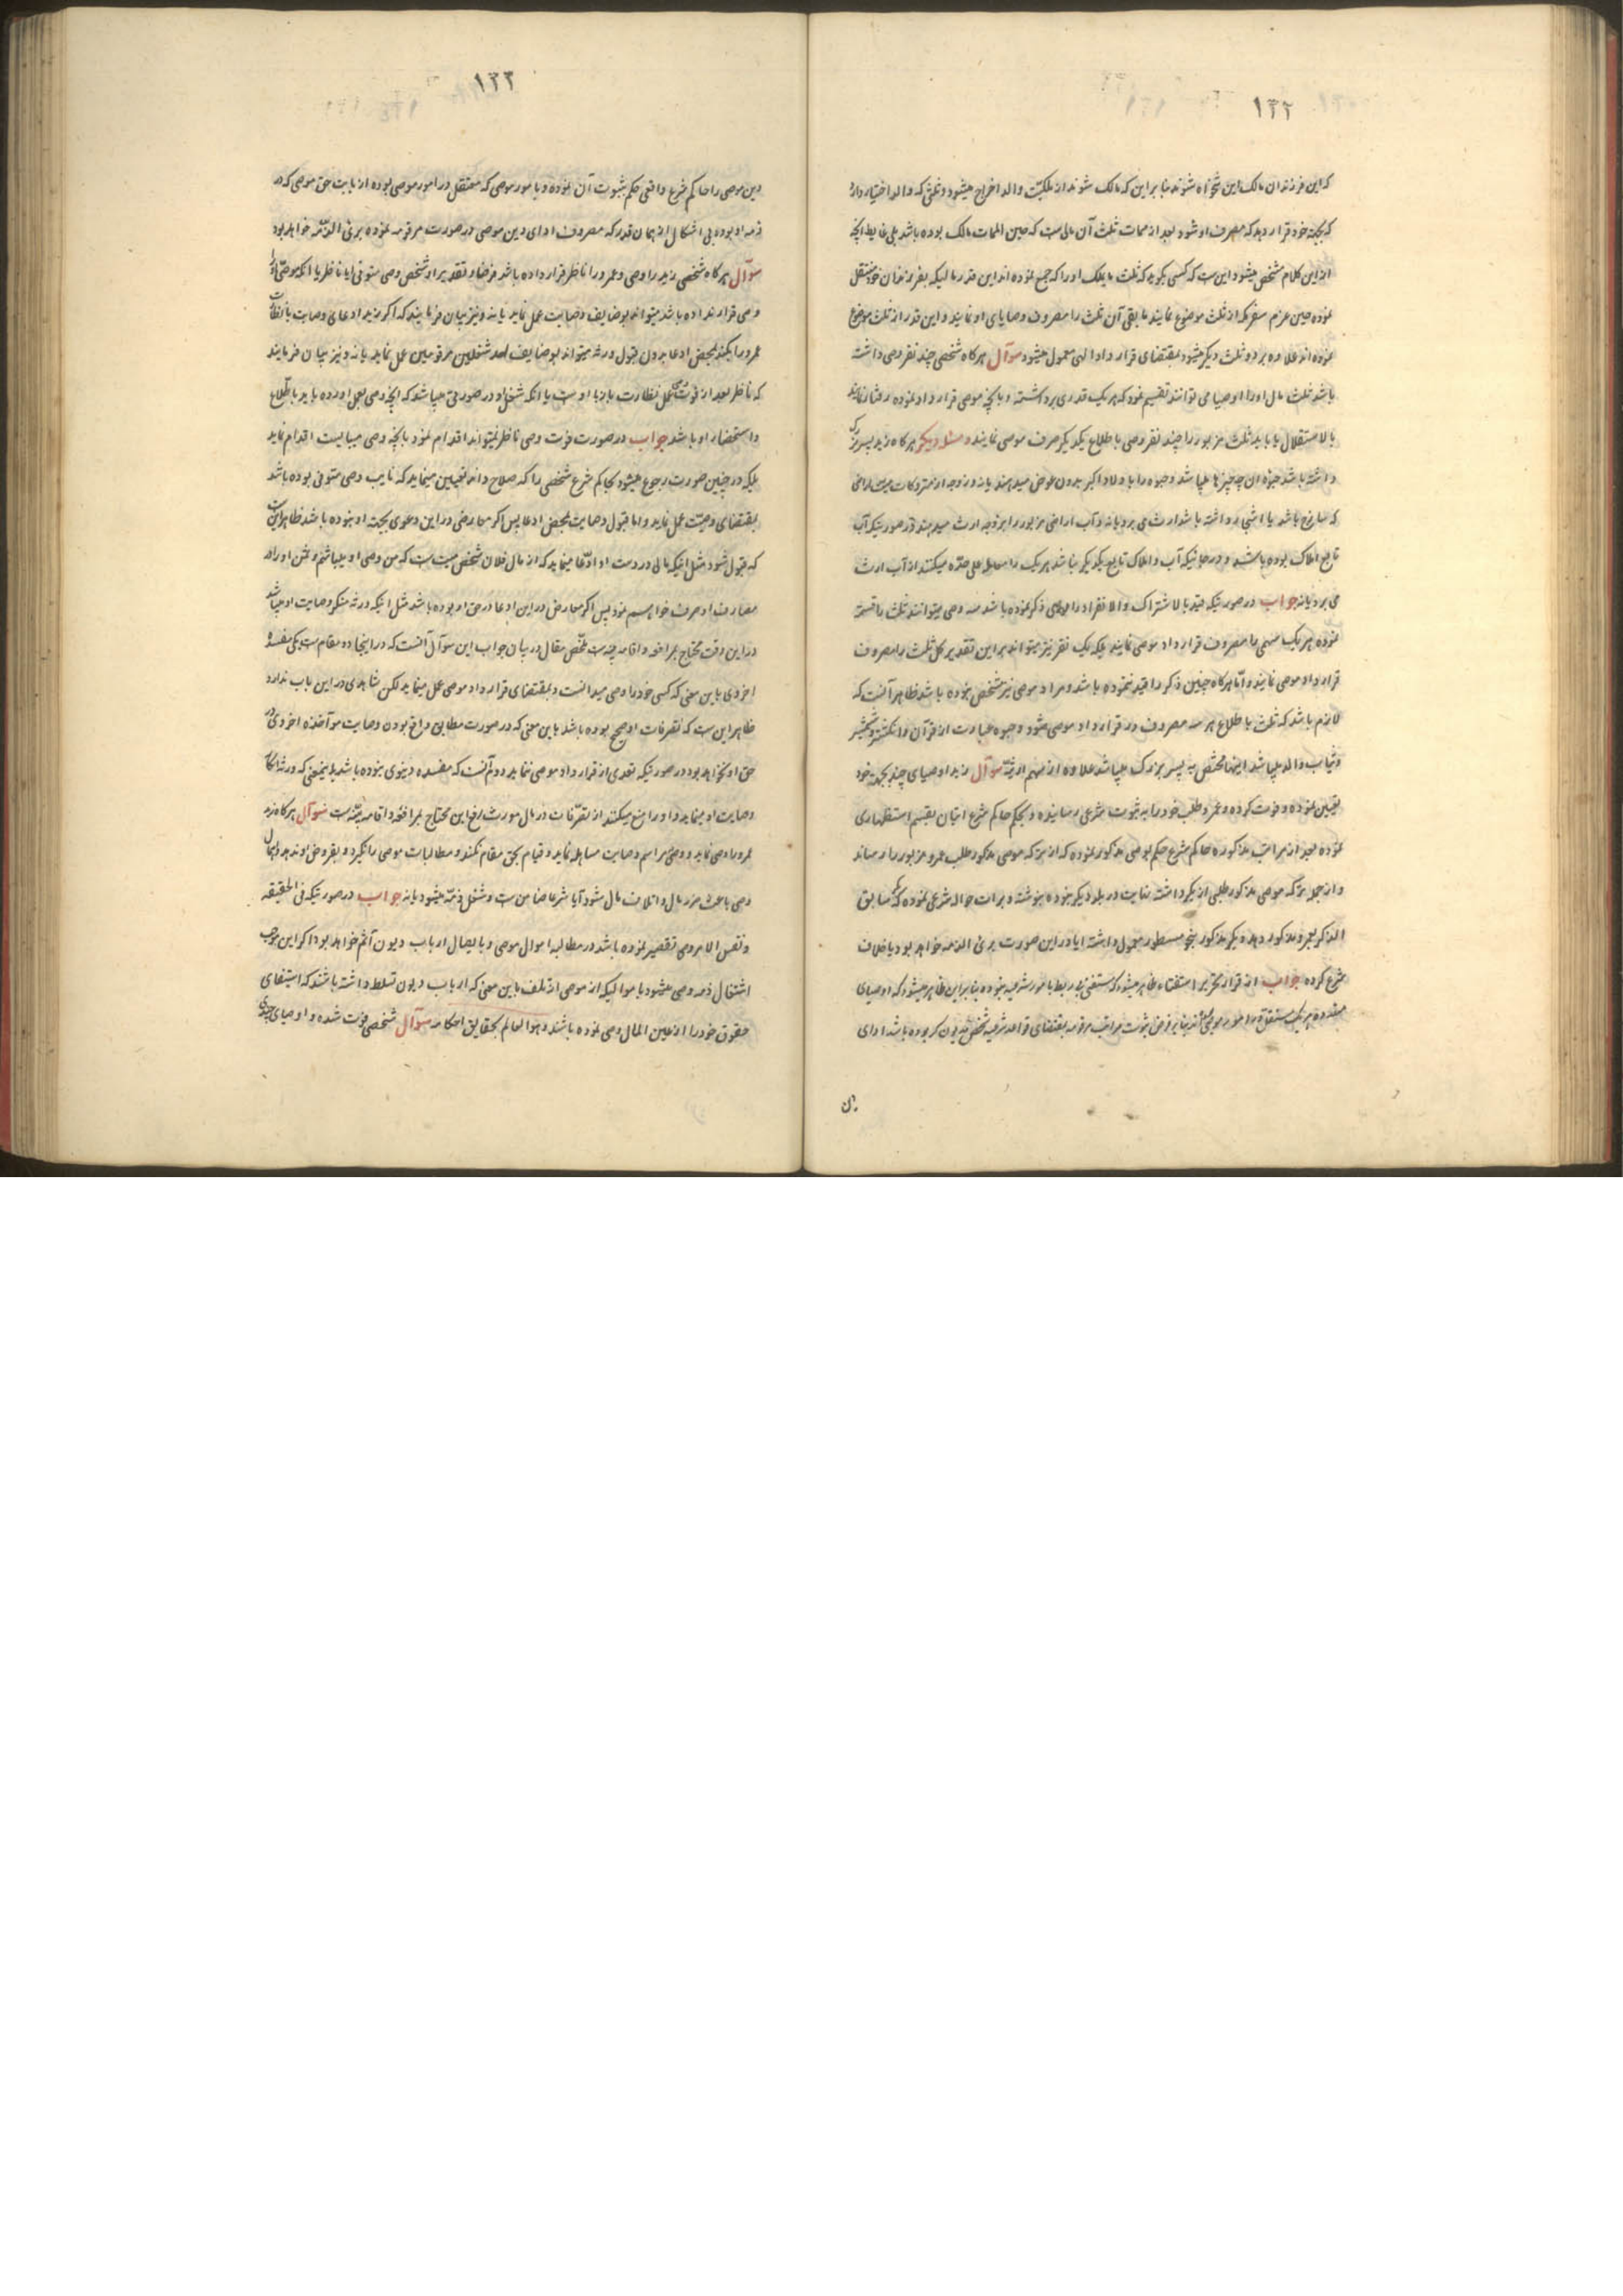 ۱۳۲
که این فرزندان مالک این تنخواه شوند بنا بر این که مالک شوند از ملکیّت والد اخراج میشود و ثلثی که والد اختیار دارد
که بجهة خود قرار دهد که مصرف او شود بعد از ممات ثلث آن مالی ست که حین الممات مالک بوده باشد بلی غایط آنچه
از این کلام مشخص میشود این ست که کسی بگوید که ثلث مایملک او را که جمع نموده اند این قدر مالیکه بفرزندان خود منتقل
نموده حین عزم سفر مکه از ثلث موضوع نمایند مابقی آن ثلث را مصروف وصایای او نمایند و این قدر از ثلث موضوع
نموده اند علاوه بر دو ثلث دیگر میشود بمقتضای قرار داد الهی معمول میشود سوآل هر کاه شخصی چند نفر وصی داشته
باشد ثلث مال او را اوصیا می توانند تقسیم نمود که هر یک قدری برداشته و بآنچه موصی قرار داد نموده رفتار نمایند
بالاستقلال یا باید ثلث مزبور را چند نفر وصی باطلاع یکدیکر صرف موصی نمایند و مسئله دیگر هر کاه زید پسر بزرگ
داشته باشد حبوه آن چه چیزها میباشد و حبوه را باولاد اکبر بدون عوض میدهند یا نه و زوجه از متروکات میت اراضی
که مزارع باشد یا اشجار داشته باشد ارث می برد یا نه و آب اراضی مزبور را بزوجه ارث میدهند در صورتیکه آب
تابع املاک بوده باشد و درحالتیکه آب و املاک تابع یکدیگر نباشد هر یک را معامله علی حدّه میکنند از آب ارث
می برد یا نه جواب در صورتیکه قید بالاشتراک و الانفراد را موصی ذکر نموده باشد سه وصی میتوانند ثلث را قسمة
نموده هر یک سهمی را مصروف قرارداد موصی نمایند بلکه یک نفر نیز میتواند بر این تقدیر کل ثلث را مصروف
قرارداد موصی نمایند و امّا هرکاه چنین ذکر را قید ننموده باشد و مراد موصی نیز مشخص نبوده باشد ظاهر آنست که
لازم باشد که ثلث باطلاع هر سه مصروف در قرارداد موصی شود و حبوه عبارت از قرآن و انکشتر و شمشیر
و ثیاب والد میباشد اینها مختص به پسر بزرک میباشد علاوه از سهم ارثیّه سوآل زید اوصیای چند بجهة خود
تعیین نموده و فوت کرده و عمرو طلب خود را به ثبوت شرعی رسانیده و بحکم حاکم شرع اتیان بقسم استظهاری
نموده بعد از مراتب مذکوره حاکم شرع حکم بوصی مذکور نموده که از ترکه موصی مذکور طلب عمرو مزبور را رساند
و از جمله ترکه موصی مذکور طلبی از بکر داشته نهایت در بلد دیگر بوده نوشته و برات حواله شرعی نموده که سابق
الذکر بعمرو مذکور دهد و بکر مذکور بنهج مسطور معمول داشته ایا در این صورت بریء الذمه خواهد بود یا خلاف
شرع کرده جواب از قرار تحریر استفتاء ظاهر میشود که مستفتی بی ربط بامور شرعیه نبوده بنا بر این ظاهر میشود که اوصیای
متعدده هر یک مستقل در امور موصی اند بنا بر فرض ثبوت مراتب مرقومه بمقتضای قواعد شرعیه شخص مدیون که بوده باشد ادای
دین
۱۳۳
دین موصی را حاکم شرع واقعی حکم بثبوت آن نموده و بامور موصی که مستقل در امور موصی بوده از بابت حق موصی که در
ذمه او بوده بی اشکال از همان قدر که مصروف ادای دین موصی در صورت مرقومه نموده بریء الذمّه خواهد بود
سوآل هر کاه شخصی زید را وصی و عمرو را ناظر قرار داده باشد فرضا و تقدیرا و شخص وصی متوفی ایا ناظر یا انکه موصی او را
وصی قرار نداده باشد میتواند بوضایف وصایت عمل نماید یا نه و نیز بیان فرمایند که اکر زید ادعای وصایت یا نظارت
عمرو را بکند بمحض ادعا بدون قبول ورثه میتواند بوضایف احد شغلین مرقومین عمل نماید یا نه و نیز بیان فرمایند
که ناظر بعد از فوت وصی عمل نظارت بازبا اوست یا انکه شغل او در صورتی میباشد که آنچه وصی بعمل اورده باید باطّلاع
و استحضار او باشد جواب در صورت فوت وصی ناظر نمیتواند اقدام نمود بآنچه وصی میبایست اقدام نماید
بلکه در چنین صورت رجوع میشود بحاکم شرع شخصی را که صلاح داند تعیین مینماید که نایب وصی متوفی بوده باشد
بمقتضای وصیّت عمل نماید و اما قبول وصایت بمحض ادعا پس اکر معارضی در این دعوی بجهة او نبوده باشد ظاهر این ست
که قبول شود مثل اینکه مالی در دست او ادّعا مینماید که از مال فلان شخص میت ست که من وصی او میباشم و ثمن او را در
مصارف او صرف خواهم نمود پس اکر معارض در این ادعا در حق او بوده باشد مثل اینکه ورثه منکر وصایت او میباشد
در این وقت محتاج بمرافعه و اقامه بیّنه ست ملخّص مقال در بیان جواب این سوآل آنست که در اینجا دو مقام ست یکی مفسده
اخروی باین معنی که کسی خود را وصی میدانست و بمقتضای قرارداد موصی عمل مینماید لکن شاهدی در این باب ندارد
ظاهر این ست که تصرفات او صحیح بوده باشد باین معنی که در صورت مطابق واقع بودن وصایت مواخذه اخروی در
حق او نخواهد بود در صورتیکه تعدی از قرارداد موصی ننماید دویم آنست که مفسده دنیوی نبوده باشد باینمعنی که ورثه انکار
وصایت او مینماید و او را منع میکنند از تصرّفات در مال مورث رفع این محتاج بمرافعه و اقامه بیّنه ست سوآل هرکاه زید
عمرو را وصی نماید و وصی مراسم وصایت مساهله نماید و قیام بحق مقام نکند و مطالبات موصی را نگیرد و بقروض او ندهد و اهمال
وصی باعث ضرر مال و اتلاف مال شود آیا شرعا ضامن ست و مشغل ذمّه میشود یا نه جواب در صورتیکه فی الحقیقه
و نفس الامر وصی تقصیر نموده باشد در مطالبه اموال موصی و بایصال ارباب دیون آثم خواهد بود اکر این موجب
اشتغال ذمه وصی میشود باموالیکه از موصی از تلف باین معنی که ارباب دیون تسلط داشته باشند که استیفای
حقوق خود را از عین المال وصی نموده باشند و هو العالم بحقایق احکامه سوآل شخصی فوت شده و اوصیای چندی